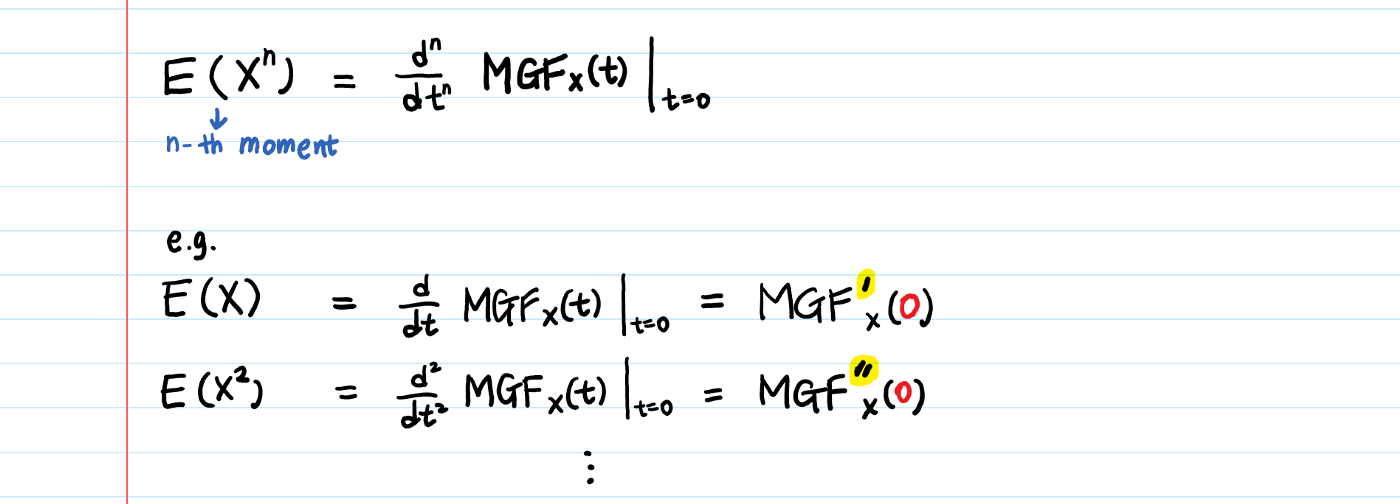 E(Xⁿ) = dⁿ/dtⁿ MGFₓ(t) |ₜ₌₀
n-th moment
e.g.
E(X) = d/dt MGFₓ(t) |ₜ₌₀ = MGF′ₓ(0)
E(X²) = d²/dt² MGFₓ(t) |ₜ₌₀ = MGF″ₓ(0)
⋮